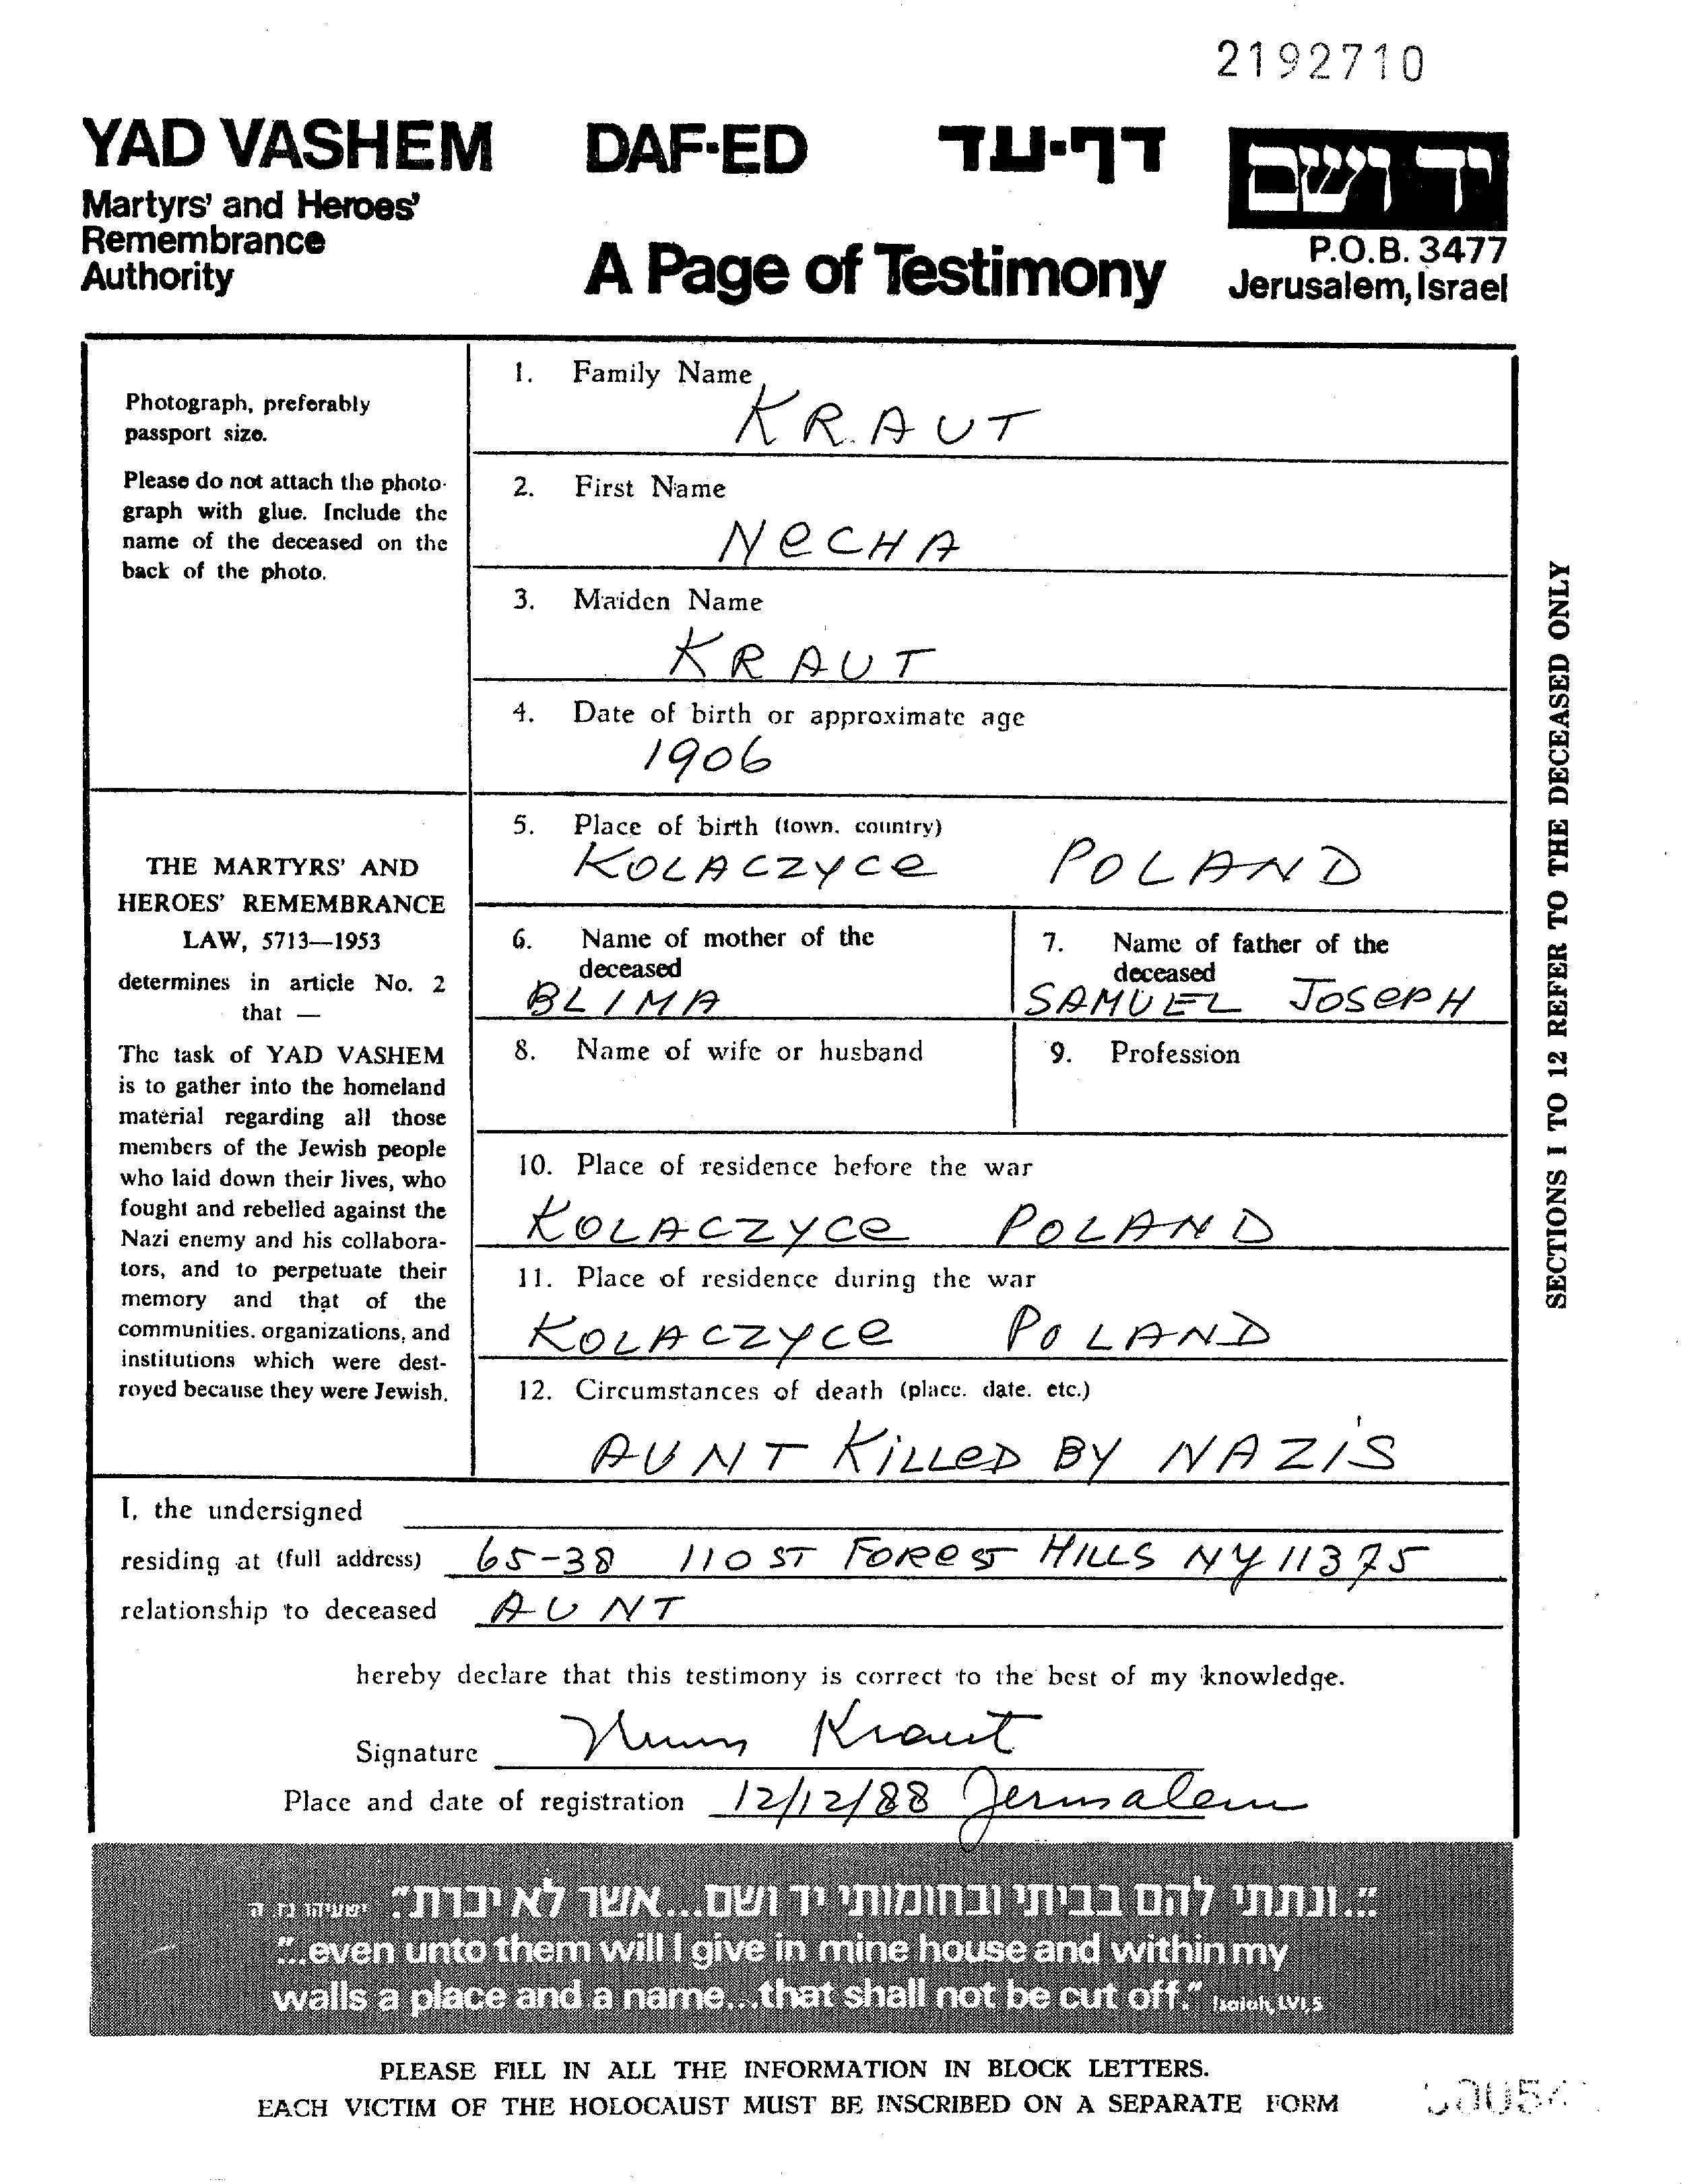 2192710
YAD VASHEM
Martyrs' and Heroes'
Remembrance
Authority
DAF-ED
דף-עד
A Page of Testimony
יד ושם
P.O.B. 3477
Jerusalem, Israel
Photograph, preferably
passport size.
Please do not attach the photo-
graph with glue. Include the
name of the deceased on the
back of the photo.
THE MARTYRS' AND
HEROES' REMEMBRANCE
LAW, 5713—1953
determines in article No. 2
that —
The task of YAD VASHEM
is to gather into the homeland
material regarding all those
members of the Jewish people
who laid down their lives, who
fought and rebelled against the
Nazi enemy and his collabora-
tors, and to perpetuate their
memory and that of the
communities, organizations, and
institutions which were dest-
royed because they were Jewish.
1. Family Name
KRAUT
2. First Name
NeCHA
3. Maiden Name
KRAUT
4. Date of birth or approximate age
1906
5. Place of birth (town, country)
KOLACZYCe POLAND
6. Name of mother of the
deceased
BLIMA
7. Name of father of the
deceased
SAMUEL JOSePH
8. Name of wife or husband
9. Profession
10. Place of residence before the war
KOLACZYCe POLAND
11. Place of residence during the war
KOLACZYCe POLAND
12. Circumstances of death (place, date, etc.)
AUNT KiLLeD BY NAZIS
SECTIONS 1 TO 12 REFER TO THE DECEASED ONLY
I, the undersigned
residing at (full address) 65-38 110 ST FOReST HILLS NY 11375
relationship to deceased AUNT
hereby declare that this testimony is correct to the best of my knowledge.
Signature Kraut
Place and date of registration 12/12/88 Jerusalem
"...ונתתי להם בביתי ובחומותי יד ושם...אשר לא יכרת". ישעיהו נו, ה
"...even unto them will I give in mine house and within my
walls a place and a name...that shall not be cut off." Isaiah, LVI,5
PLEASE FILL IN ALL THE INFORMATION IN BLOCK LETTERS.
EACH VICTIM OF THE HOLOCAUST MUST BE INSCRIBED ON A SEPARATE FORM